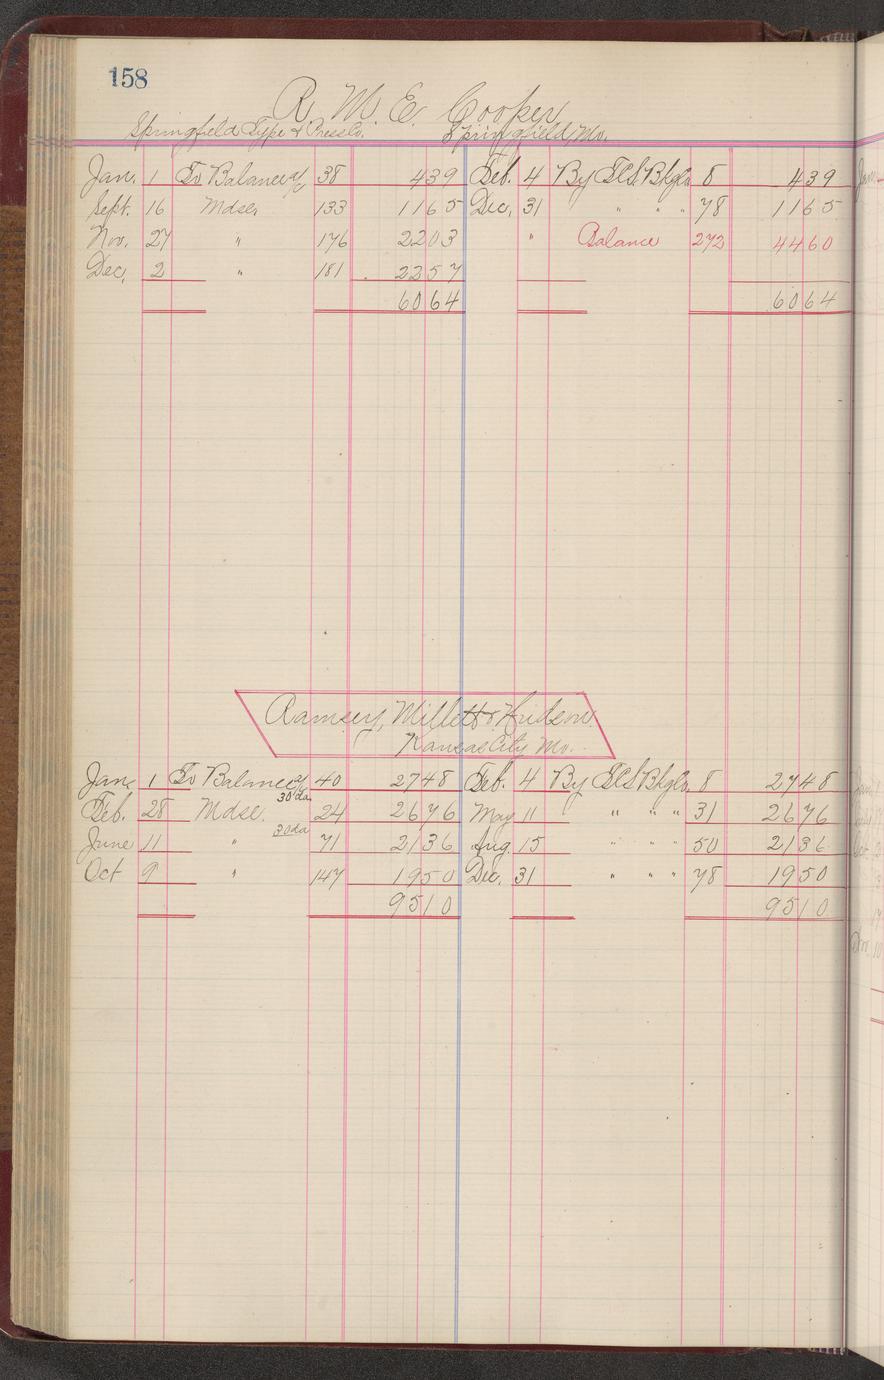 158
R. M. E. Cooper
Springfield Type & Press Co. Springfield, Mo.
Jan. 1 To Balance a/c 38 439 Feb. 4 By T.C.S. Bkg Co. 8 439
Sept. 16 Mdse, 133 1165 Dec, 31 " " " 78 1165
Nov. 27 " 176 2203 " Balance 272 4460
Dec, 2 " 181 2257
6064 6064
Ramsey, Millett & Hudson
Kansas City Mo.
Jan. 1 To Balance a/c 40 2748 Feb. 4 By T.C.S. Bkg Co. 8 2748
Feb. 28 Mdse. 30 da. 24 2676 May 11 " " " 31 2676
June 11 " 30 da 71 2136 Aug. 15 " " " 50 2136
Oct 9 " 147 1950 Dec. 31 " " " 78 1950
9510 9510